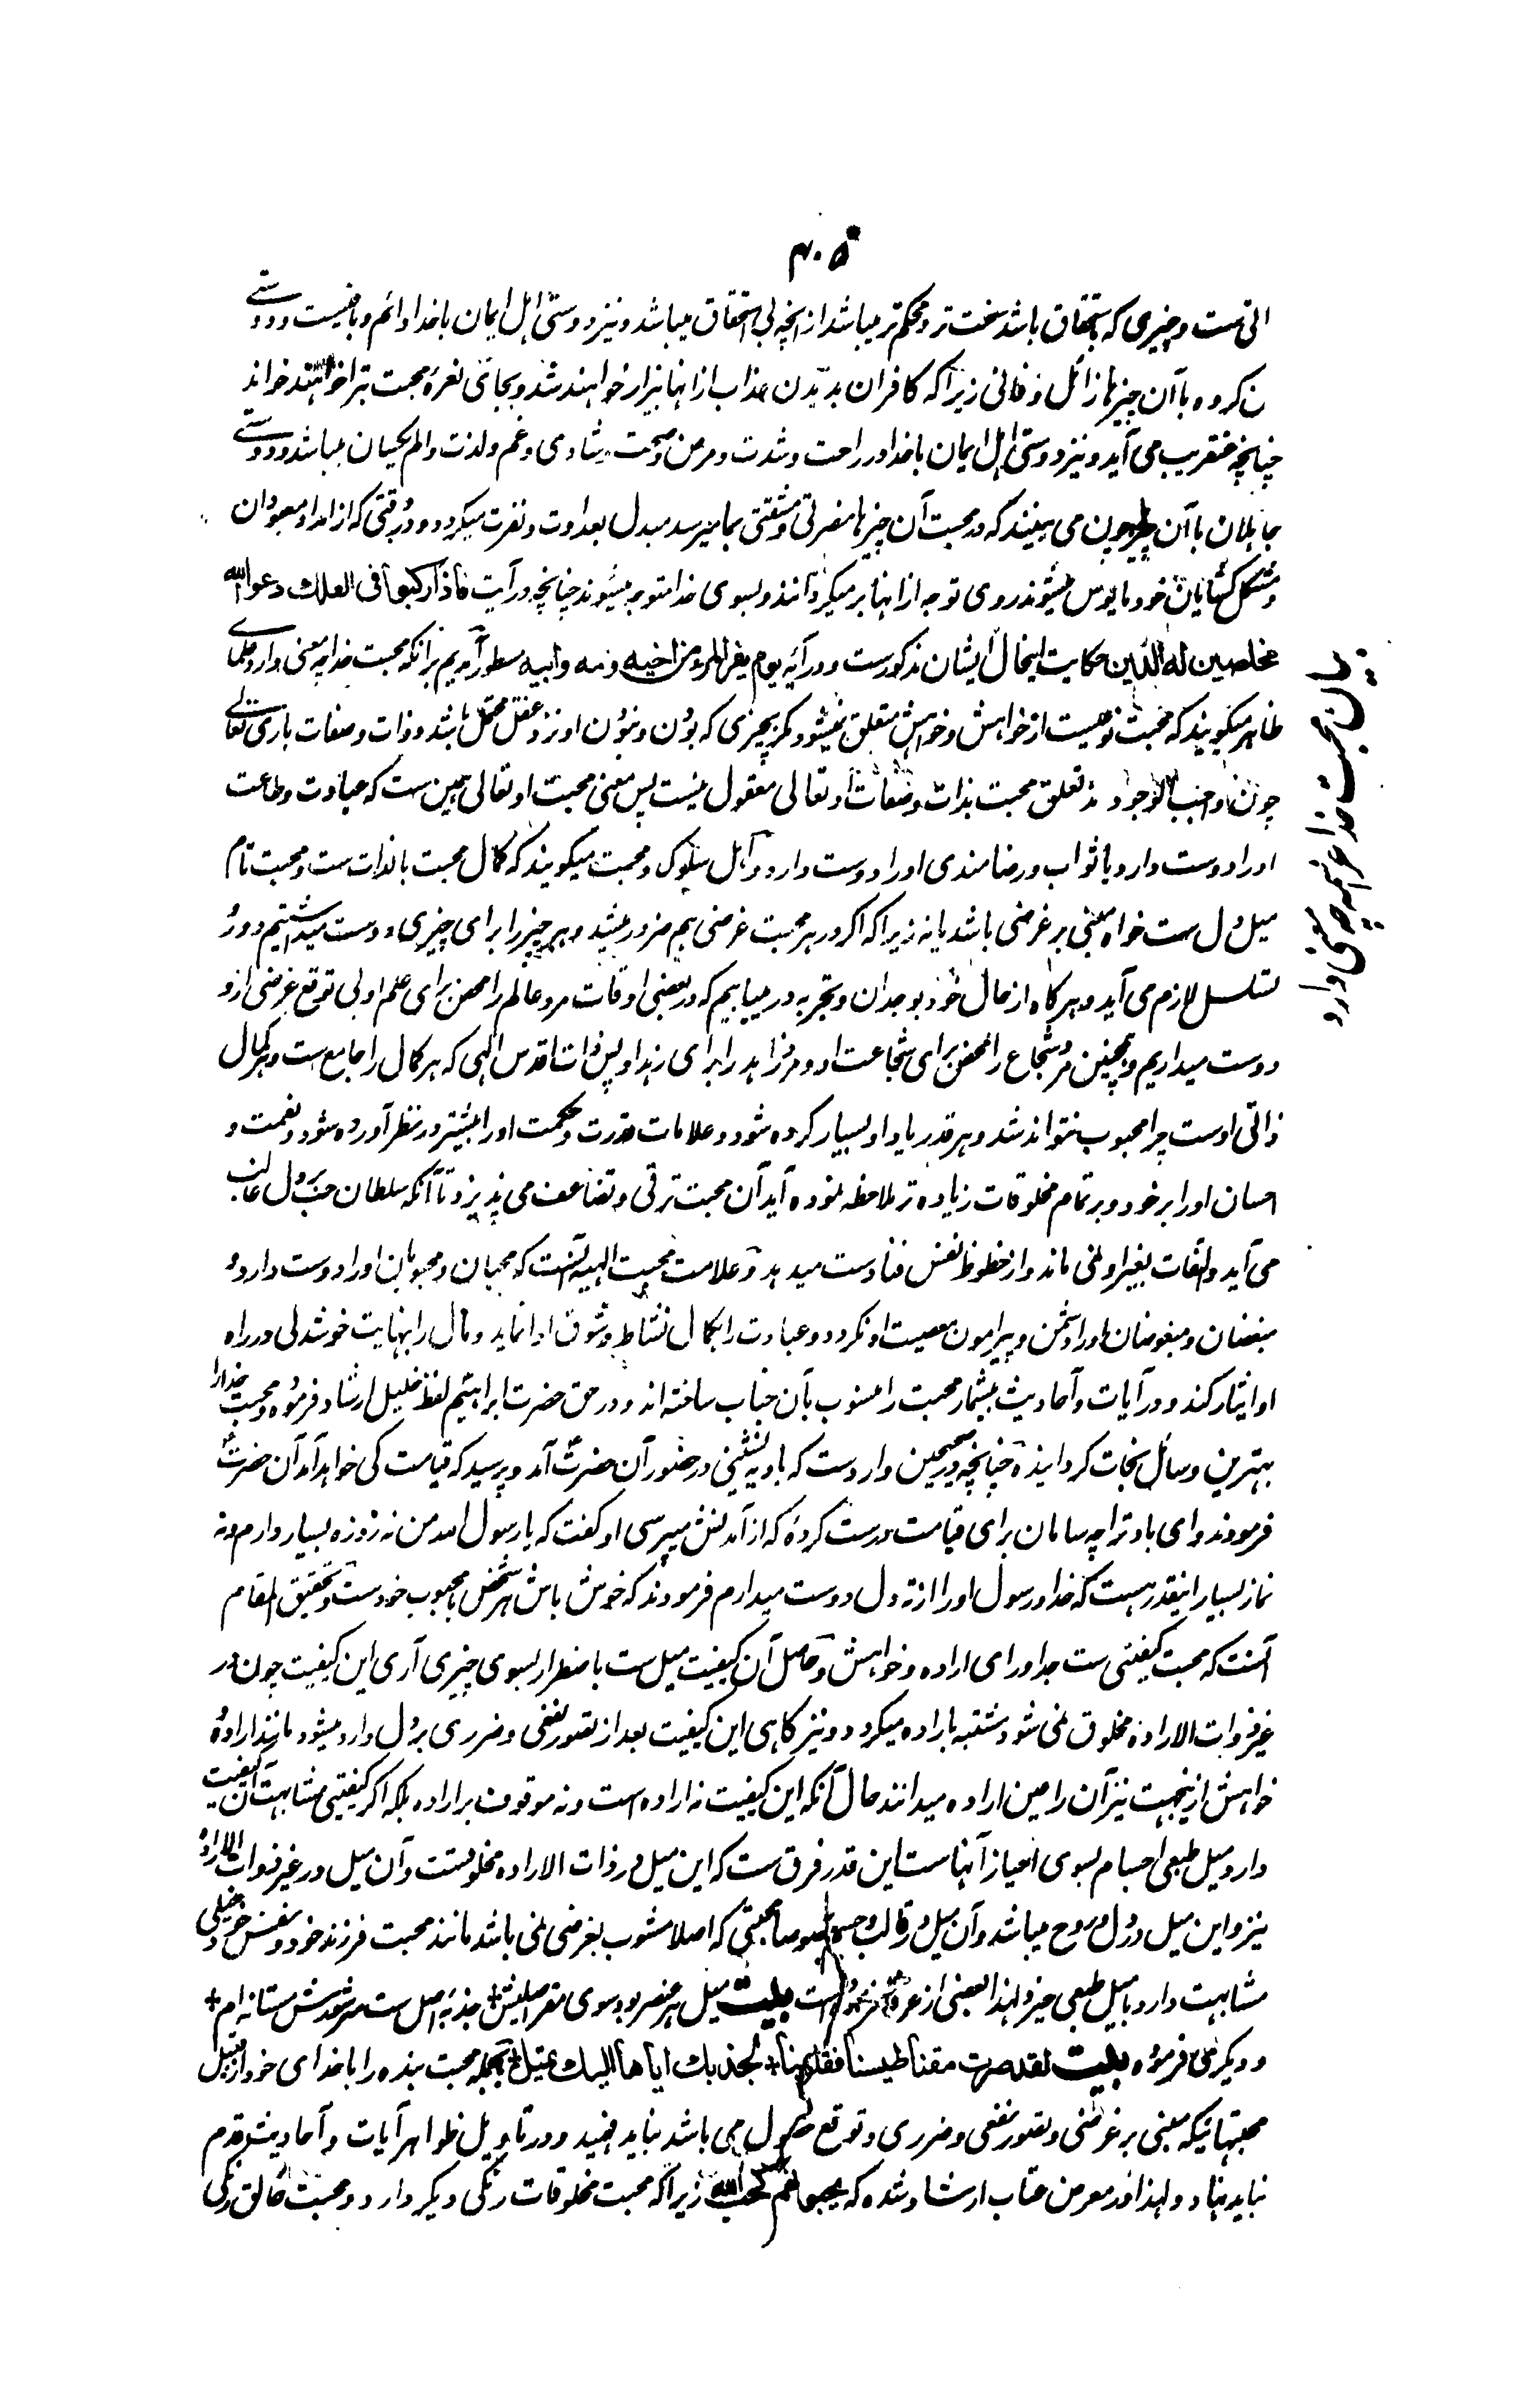 ۴۰۵
الٰتی ست و چیزی که باستحقاق باشد سخت تر و محکم تر میباشد از انچه بی استحقاق میباشد و نیز دوستی اهل ایمان با خدا دائم و باقیست و دوستے
ن کروه با آن چیزها زائل و فانی زیرا که کافران بدیدن عذاب ازانها بیزار خواهند شد و بجای نعرهٔ محبت تبرا خواهند خواند
چنانچه عنقریب می آید و نیز دوستی اهل ایمان با خدا در راحت و شدت و مرض و صحت و شادی و غم و لذت و الم یکسان میباشد و دوستے
جاهلان با آن چیزها چون می بینند که در محبت آن چیزها مضرتی و مشقتی بما میرسد مبدل بعداوت و نفرت میکردد و در وقتی که از امداد معبودان
و مشکل کشایان خود مایوس میشوند روی توجه از انها بر میکردانند و بسوی خدا متوجه میشوند چنانچه در آیت فاذا رکبوا فی الفلك دعوا الله
مخلصین له الدین حکایت اینحال ایشان مذکورست و در آیه یوم یفر المرء من اخیه و امه و ابیه مسطور آمدیم بر انکه محبت خدا چه معنی دارد علمای
ظاهر میکویند که محبت نوعیست از خواهش و خواهش متعلق نمیشود مکر بچیزی که بودن و نبودن او نزد عقل محتمل باشد و ذات و صفات باری تعالی
چون واجب الوجودند تعلق محبت بذات و صفات او تعالی معقول نیست پس معنی محبت او تعالی همین ست که عبادت و طاعت
او را دوست دارد یا ثواب و رضامندی او را دوست دارد و اهل سلوک و محبت میکویند که کمال محبت بالذات ست و محبت نام
میل دل ست خواه مبنی بر غرضی باشد یا نه زیرا که اکر در هر محبت غرضی هم ضرور میشد و هر چیز را برای چیزی دوست میداشتیم دور
تسلسل لازم می آید و هرکاه از حال خود بوجدان و تجربه در مییابیم که در بعضی اوقات مرد عالم را محض برای علم او بی توقع غرضی ازو
دوست میداریم و همچنین مرد شجاع را محض برای شجاعت او و مرد زاهد را برای زهد او پس ذات اقدس الٰهی که هر کمال را جامع ست و هر کمال
ذاتی اوست چرا محبوب نتواند شد و هر قدر یاد او بسیار کرده شود و علامات قدرت و حکمت او را بیشتر در نظر آورده شود و نعمت و
احسان او را بر خود و بر تمام مخلوقات زیاده تر ملاحظه نموده آید آن محبت ترقی و تضاعف می پذیرد تا آنکه سلطان حب بر دل غالب
می آید و التفات بغیر او نمی ماند و از حظوظ نفس فنا دست میدهد و علامت محبت الهیه آنست که محبان و محبوبان او را دوست دارد و
مبغضان و مبغوضان او را دشمن و پیرامون معصیت او نکردد و عبادت را بکمال نشاط و شوق ادا نماید و مال را بنهایت خوشدلی در راه
او ایثار کند و در آیات و احادیث بیشمار محبت را منسوب بآن جناب ساخته اند و در حق حضرت ابراهیم لفظ خلیل ارشاد فرموده و محبت خدا را
بهترین وسائل نجات کردانیده چنانچه در صحیحین واردست که بادیه نشینی در حضور آن حضرت آمد و پرسید که قیامت کی خواهد آمد آن حضرت
فرمودند وای باد ترا چه سامان برای قیامت درست کرده که از آمدنش میپرسی او کفت که یا رسول الله من نه روزه بسیار دارم و نه
نماز بسیار اینقدر هست که خدا و رسول او را از ته دل دوست میدارم فرمودند که خوش باش هر شخص با محبوب خودست و تحقیق المقام
آنست که محبت کیفیتی ست جدا ورای اراده و خواهش و حاصل آن کیفیت میل ست باضطرار بسوی چیزی آری این کیفیت چون در
غیر ذوات الاراده مخلوق نمی شود مشتبه باراده میکردد و نیز کاهی این کیفیت بعد از تصور نفعی و ضرری بر دل وارد میشود مانند اراده
خواهش ازینجهت نیز آن را عین اراده میدانند حال آنکه این کیفیت نه اراده است و نه موقوف بر اراده بلکه اکر کیفیتی مشابهت آن کیفیت
دارد میل طبعی اجسام بسوی احیاز آنهاست این قدر فرق ست که این میل در ذات الاراده مخلوقست و آن میل در غیر ذوات الاراده
نیز و این میل در دل و روح میباشد و آن میل در قالب و جسم خصوصا محبتی که اصلا مشوب بغرضی نمی باشد مانند محبت فرزند خود و نفس خود خیلی
مشابهت دارد با میل طبعی حیز و لهذا بعضی از عرفا فرموده است بیت میل هر عنصر بود سوی مقر اصلیش + جذبه اصل ست سر شورش مستانه ام +
و دیکری فرموده بیت لقد صرت مقناطیسنا فقلوبنا + لجذبك ایاها الیك تمیل + بالجمله محبت بنده را با خدای خود از قبیل
محبتهائیکه مبنی بر غرضی و تصور نفعی و ضرری و توقع حصول می باشد نباید فهمید و در تاویل ظواهر آیات و احادیث قدم
نباید نهاد و لهذا در معرض عتاب ارشاد شده که یحبونهم کحب الله زیرا که محبت مخلوقات رنکی دیکر دارد و محبت خالق رنکی
بیان محبت خدا عز اسمه چه معنی دارد